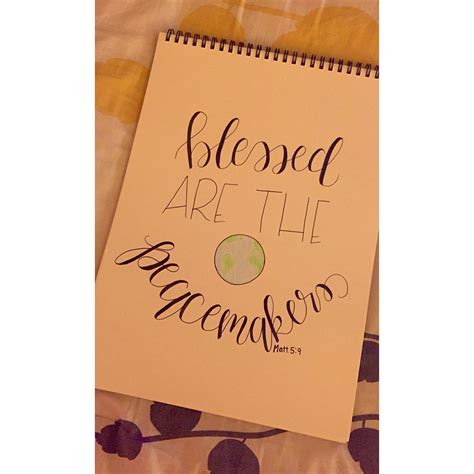 blessed
ARE THE
peacemakers
Matt. 5:9